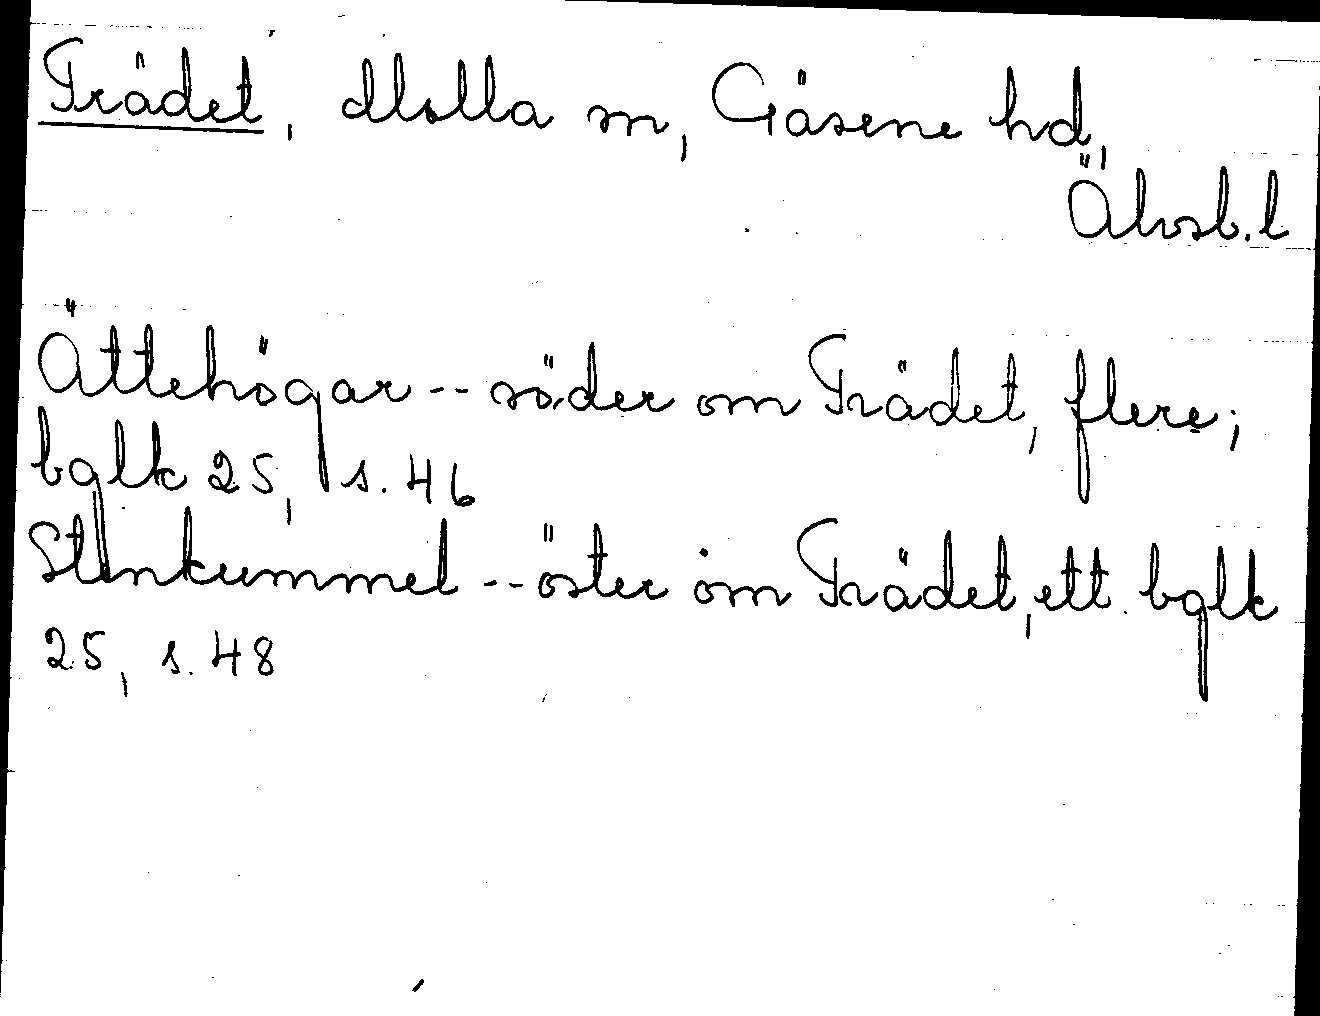 Trädet, Molla sn, Gäsene hd,
Älvsb. l
Ättehögar -- söder om Trädet, flere;
bglk 25, s. 46
Stenkummel -- öster om Trädet, ett. bglk
25, s. 48